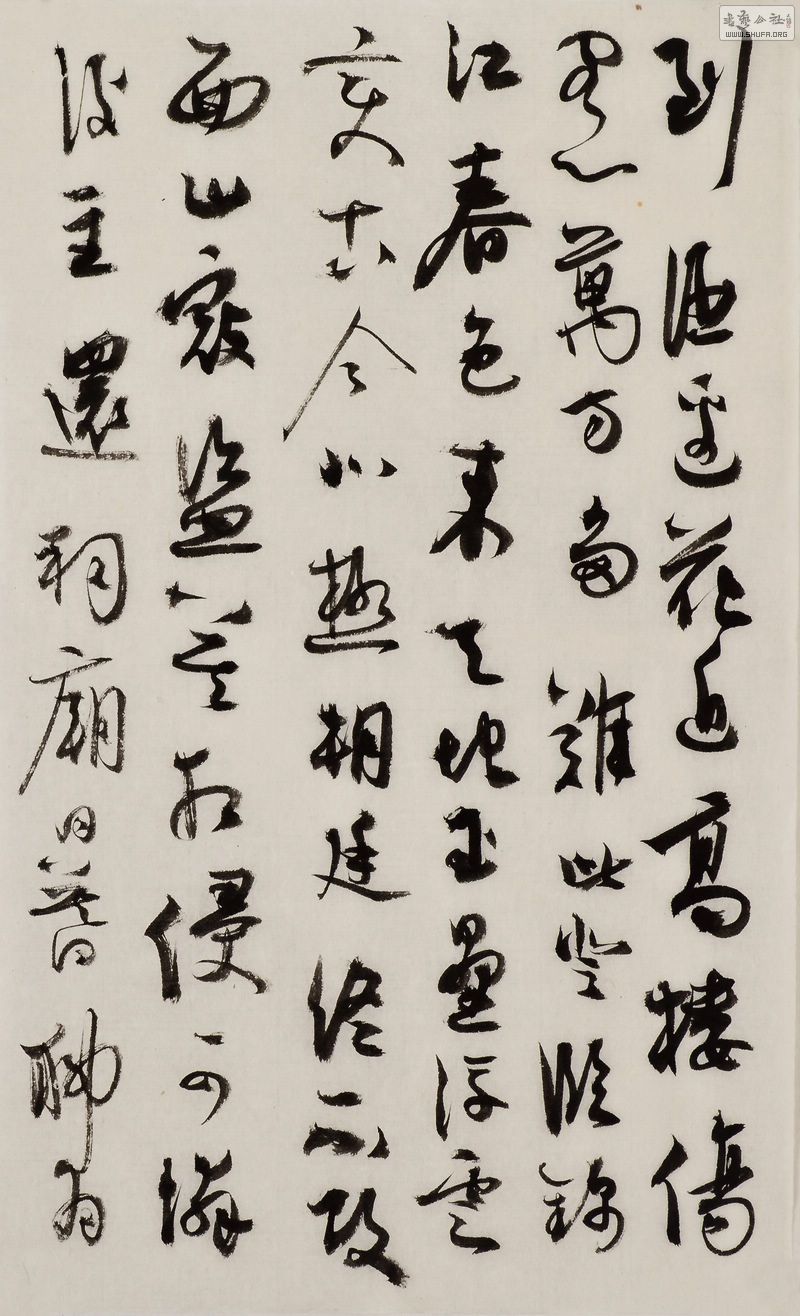 書藝公社
WWW.SHUFA.ORG
到酒邊花近高樓傷
客心萬方多難此登臨錦
江春色來天地玉壘浮雲
變古今北極朝廷終不改
西山寇盜莫相侵可憐
後主還祠廟日暮聊為